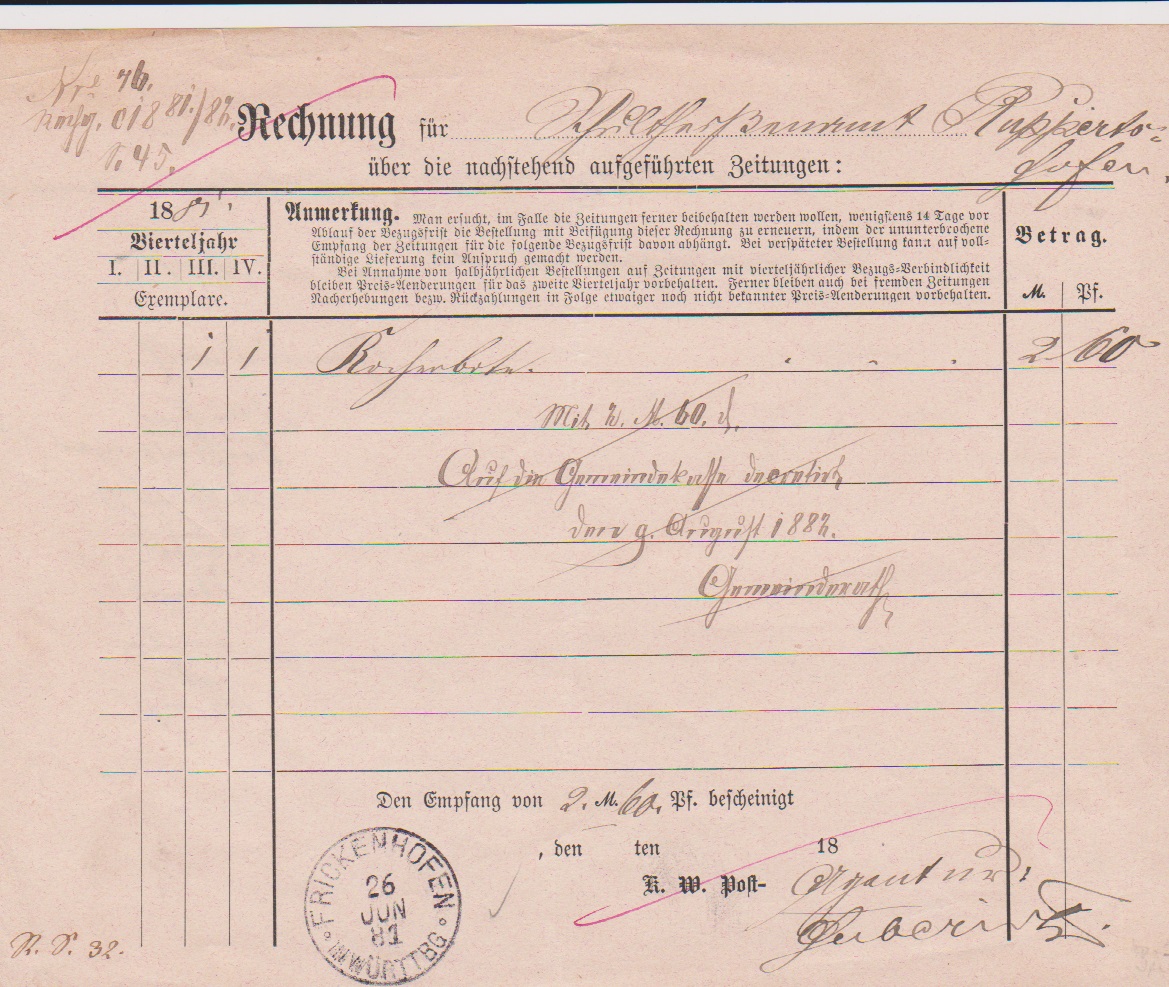 Nro 76.
Rechg. 1881/82.
S. 45.
Rechnung für Schultheißenamt Rupperts=
hofen.
über die nachstehend aufgeführten Zeitungen:
1881.
Vierteljahr
I. II. III. IV.
Exemplare.
Anmerkung. Man ersucht, im Falle die Zeitungen ferner beibehalten werden wollen, wenigstens 14 Tage vor
Ablauf der Bezugsfrist die Bestellung mit Beifügung dieser Rechnung zu erneuern, indem der ununterbrochene
Empfang der Zeitungen für die folgende Bezugsfrist davon abhängt. Bei verspäteter Bestellung kann auf voll-
ständige Lieferung kein Anspruch gemacht werden.
Bei Annahme von halbjährlichen Bestellungen auf Zeitungen mit vierteljährlicher Bezugs-Verbindlichkeit
bleiben Preis-Aenderungen für das zweite Vierteljahr vorbehalten. Ferner bleiben auch bei fremden Zeitungen
Nacherhebungen bezw. Rückzahlungen in Folge etwaiger noch nicht bekannter Preis-Aenderungen vorbehalten.
Betrag.
M. Pf.
1 1 Kocherbote. 2 60
Mit 2. M. 60. d.
Auf die Gemeindekasse decretirt
den 9. August 1882.
Gemeinderath
Den Empfang von 2. M. 60. Pf. bescheinigt
, den ten 18
K. W. Post- Agentur:
FRICKENHOFEN
26
JUN
81
IN WÜRTTBG
R. S. 32.